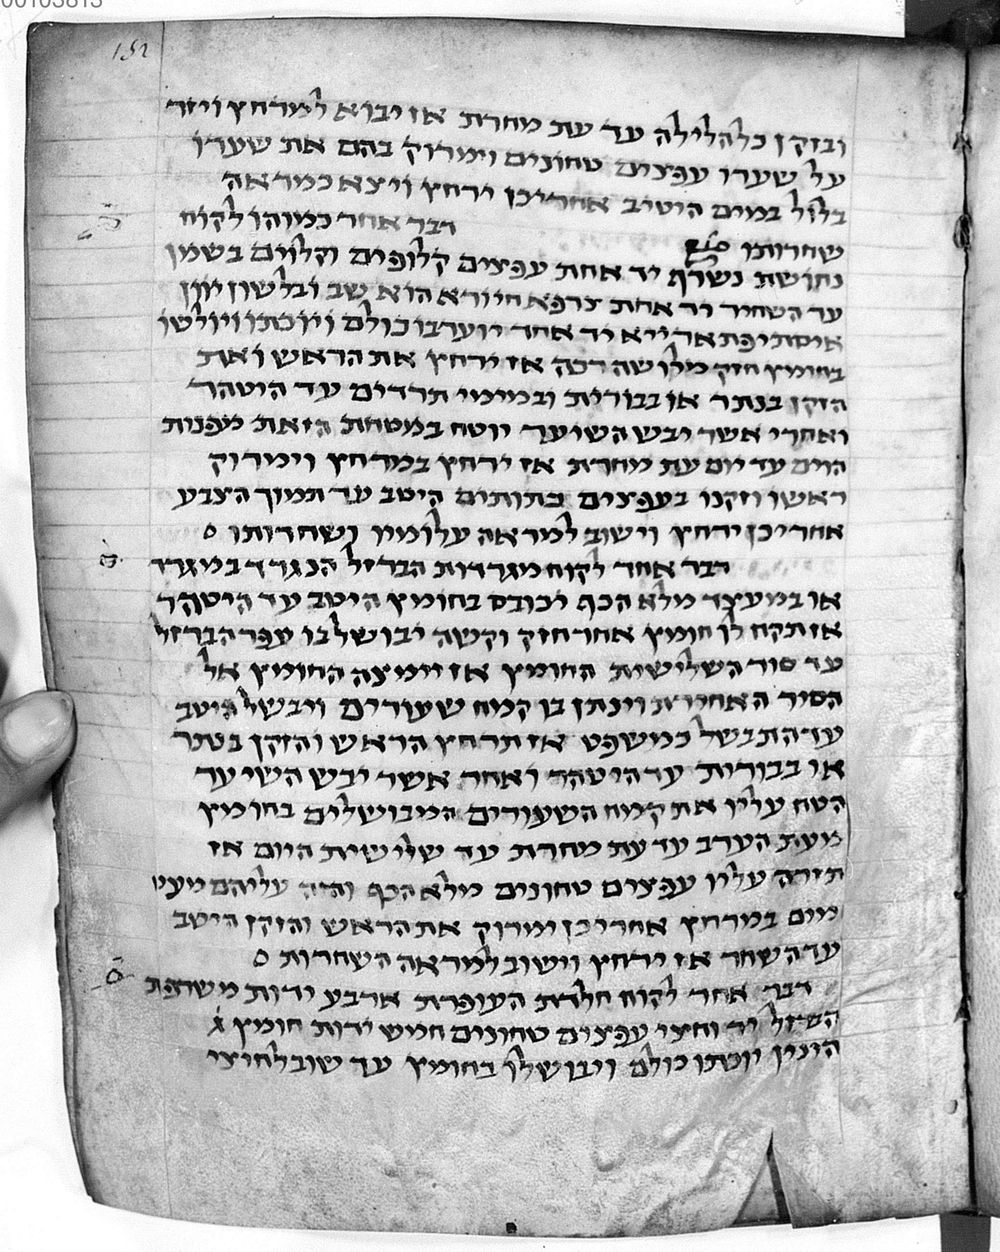 00103813
152
ובזקן כל הלילה עד עת מחרת אז יבוא למרחץ ויזר
על שערו עפצים טחונים וימרוק בהם את שערו
בלול במים היטיב אחריכן ירחץ ויצא כמראה
שחרותו
דבר אחר כמוהו לקוח
נחושת נשרף יד אחת עפצים קלופים וקלוים בשמן
עד השחיר יד אחת צרפא חיורא הוא שב ובלשון יוון
יד אחד יוערבו כולם ויוכתו ויולטו
בחומץ חזק אז ירחץ את הראש ואת
הזקן בנתר או בבורית ובמימי תרדים עד היטהר
ואחרי אשר יבש השיער יוטח במטחת הזאת מפנות
היום עד יום עת מחרת אז ירחץ במרחץ וימרוק
ראשו וזקנו בעפצים כתותים היטב עד תמוך הצבע
אחריכן ירחץ וישוב למראה עלומיו ושחרותו ס
דבר אחר לקוח מגרדות הברזל הנגרד במגרד
או במעצד מלא הכף יכובס בחומץ היטב עד היטהר
אז תקח לו חומץ אחר חזק וקשה יבושל בו עפר הברזל
עד סור השלישית החומץ אז יומצה החומץ אל
הסיר האחירת וינתן בו קמח שעורים ויבשל היטב
עד התבשל כמשפט אז תרחץ הראש והזקן בנתר
או בבורית עד היטהר ואחר אשר יבש השיער
הטח עליו את קמח השעורים המבושלים בחומץ
מעת הערב עד עת מחרת עד שלישית היום אז
תזרה עליו עפצים טחונים מלא הכף והזה עליהם מעט
מים במרחץ אחריכן ימרוק את הראש והזקן היטב
עד השחר אז ירחץ וישוב למראה השחרות ס
דבר אחר לקוח חלדת העופרת ארבע ידות משרפת
הברזל יד וחצי עפצים טחונים חמש ידות חומץ ג
הינין יוכתו כולם ויבושלו בחומץ עד שוב לחיצי